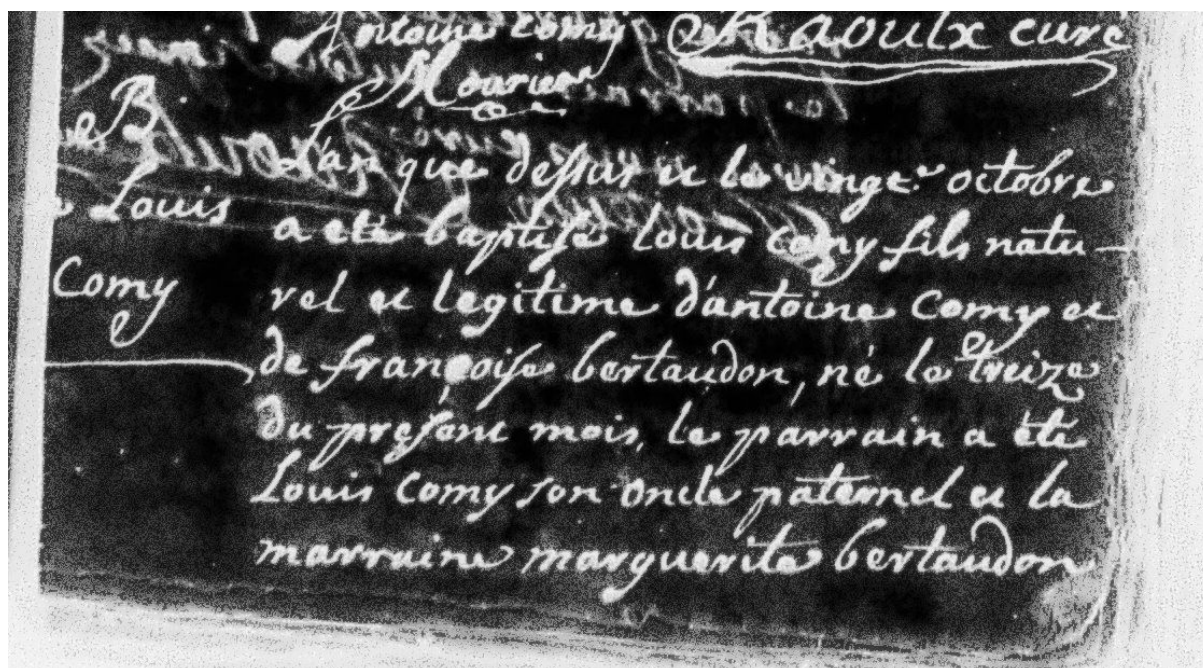 Antoine comy Raoulx curé
Mourier
B
L'an que dessus et le vingt octobre
Louis
a été baptisé louis comy fils natu-
Comy
rel et legitime d'antoine comy et
de françoise bertaudon, né le treize
du present mois, le parrain a été
Louis comy son oncle paternel et la
marraine marguerite bertaudon